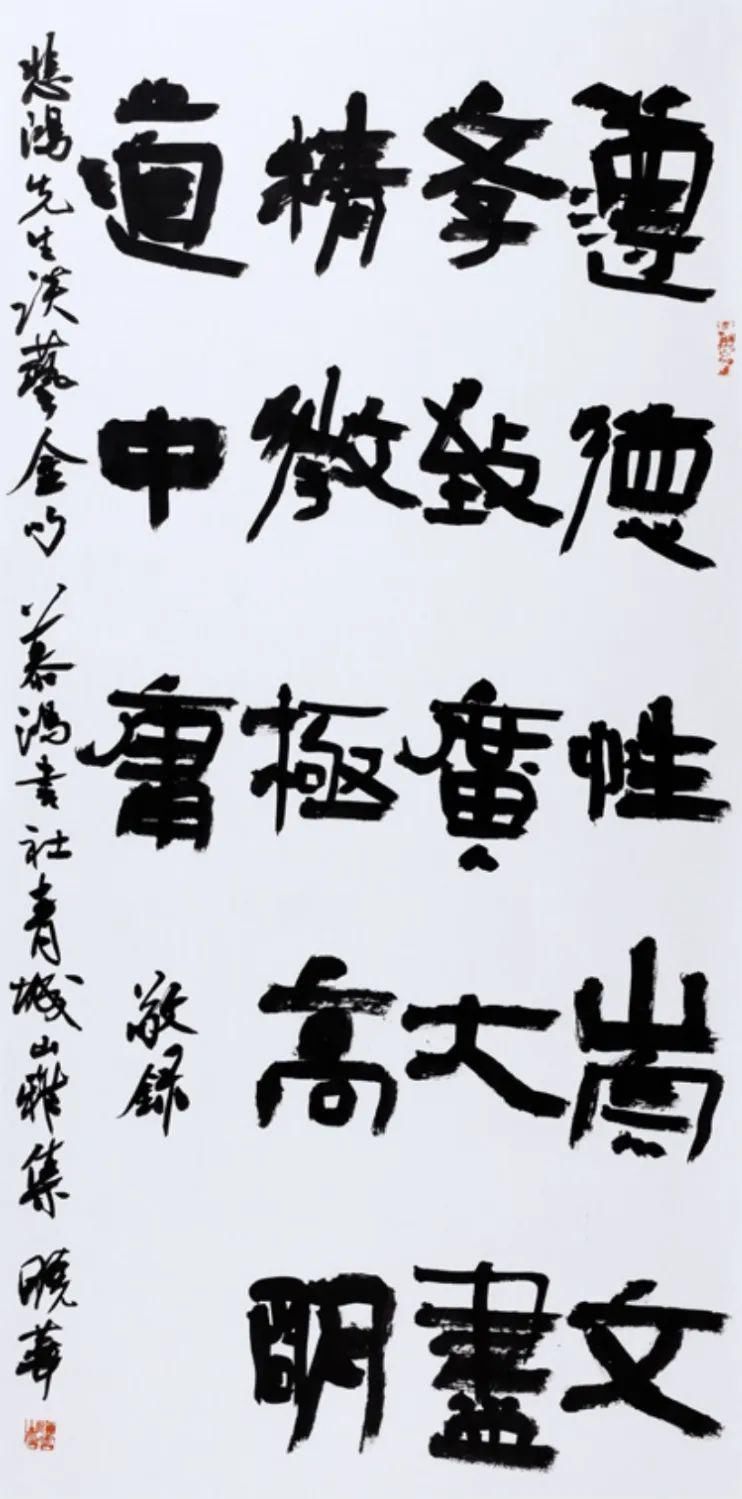 遵德性崇文
斈致廣大盡
精微極高明
道中庸 敬錄
悲鴻先生談藝金句 慕鴻書社青城山雅集 曉華